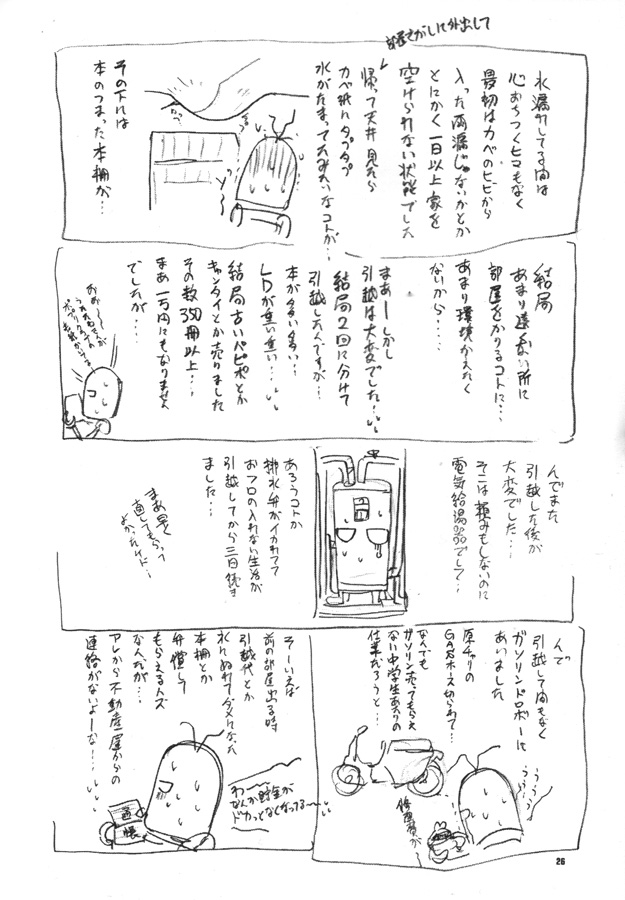 部屋さがしに外出して
水漏れしてる間は
心おちつくヒマもなく
最初はカベのヒビから
入った雨漏じゃないかとか
とにかく一日以上家を
空けられない状態でした
帰って天井見たら
カベ紙にタプタプ
水がたまってたみたいなコトが…
その下には
本のつまった本棚が…
結局
あまり遠くない所に
部屋をかりるコトに…
あまり環境かえたく
ないから‥‥
まあーしかし
引越は大変でした…
結局2回に分けて
引越したんですが…
本が多い多い…
LDが重い重い…
結局古いパピポとか
キャンタイとか売りました
その数350冊以上…
まあ一万円にもなりません
でしたが…
んでまた
引越した後が
大変でした…
そこは頼みもしないのに
電気給湯器でして…
あろうコトか
排水弁がイカれてて
おフロの入れない生活が
引越してから三日続き
ました…
まあ早く
直してもらって
よかったケド…
んで
引越して間もなく
ガソリンドロボーに
あいました
原チャリの
GASホース切られて…
なんでも
ガソリン売ってもらえ
ない中学生あたりの
仕事だろうと…
うぅうぅ
修理費が〜
そーいえば
前の部屋出る時
引越代とか
水にぬれてダメになった
本棚とか
弁償して
もらえるハズ
なんだが…
アレから不動産屋からの
連絡がないよーな…
わー
なんか貯金が
ドカっとなくなってる〜
通帳
26